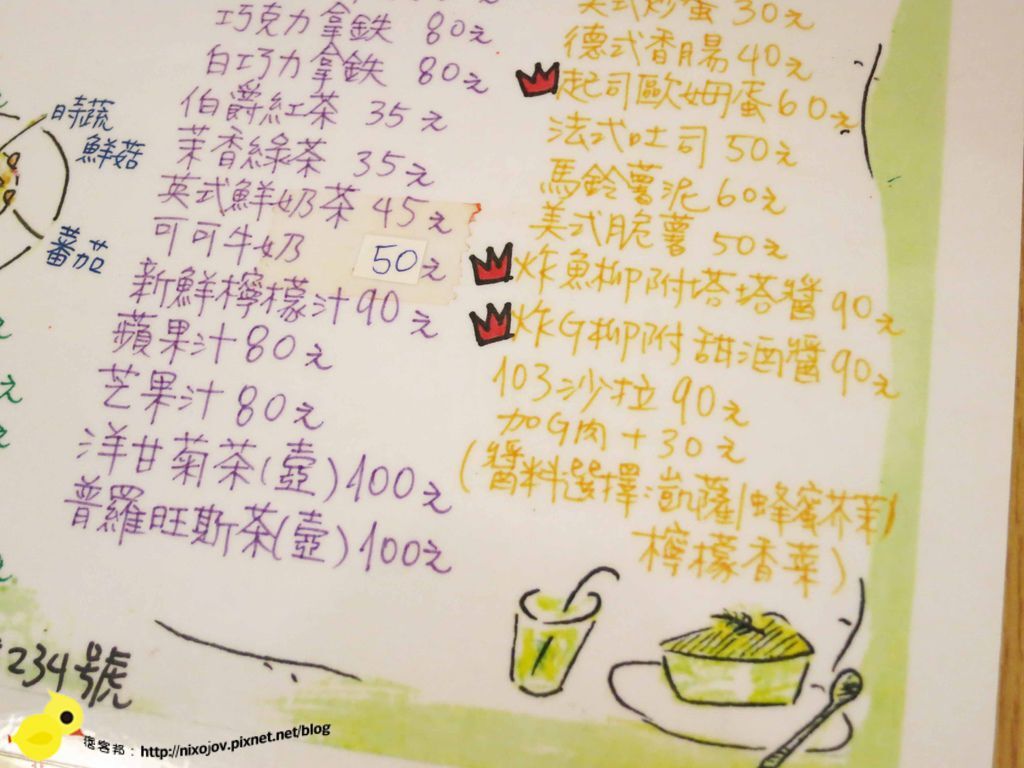 巧克力拿鉄 80元
白巧力拿鉄 80元
伯爵紅茶 35元
茉香綠茶 35元
英式鮮奶茶 45元
可可牛奶 50元
新鮮檸檬汁 90元
蘋果汁 80元
芒果汁 80元
洋甘菊茶(壺) 100元
普羅旺斯茶(壺) 100元
美式炒蛋 30元
德式香腸 40元
起司歐姆蛋 60元
法式吐司 50元
馬鈴薯泥 60元
美式脆薯 50元
炸魚柳附塔塔醬 90元
炸G柳附甜酒醬 90元
103沙拉 90元
加G肉 + 30元
(醬料選擇:凱薩/蜂蜜芥茉/
檸檬香葉)
時蔬
鮮菇
蕃茄
234號
痞客邦：http://nixojov.pixnet.net/blog